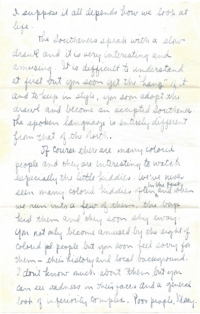 I suppose it all depends how we look at
life.
The Southerners speak with a slow
drawl and it is very interesting and
amusing. It is difficult to understand
at first but you soon get the "hang" of it
and to keep in style, you soon adopt this
drawl and become an accepted Southerner.
The spoken language is entirely different
from that of the North.
Of course there are many colored
people and they are interesting to watch
especially the little kiddies. We've never
seen many colored kiddies and when
we run into a few of them, the boys
kid them and they soon shy away.
You not only become amused by the sight of
colored people but you soon feel sorry for
them - their history and local background.
I don't know much about them but you
can see sadness in their faces and a general
look of inferiority complex. Poor people,